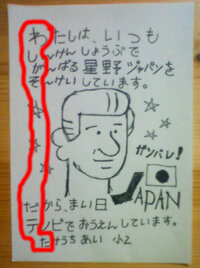 わたしは、いつも
しんけんしょうぶで
がんばる星野ジャパンを
そんけいしています。
ガンバレ!
JAPAN
だから、まい日
テレビでおうえんしています。
たけうち あい 小2